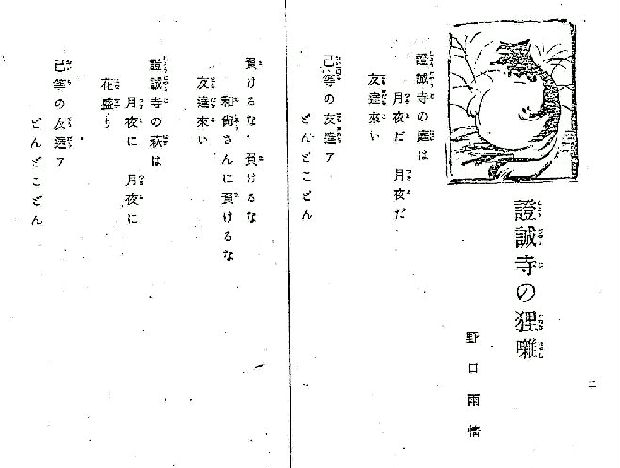 證誠寺の狸囃
野口雨情
證誠寺の庭は
月夜だ 月夜だ
友達來い
己等の友達ァ
どんどこどん
負けるな、負けるな
和尚さんに負けるな
友達來い
證誠寺の萩は
月夜に 月夜に
花盛り
己等の友達ァ
どんどこどん
二